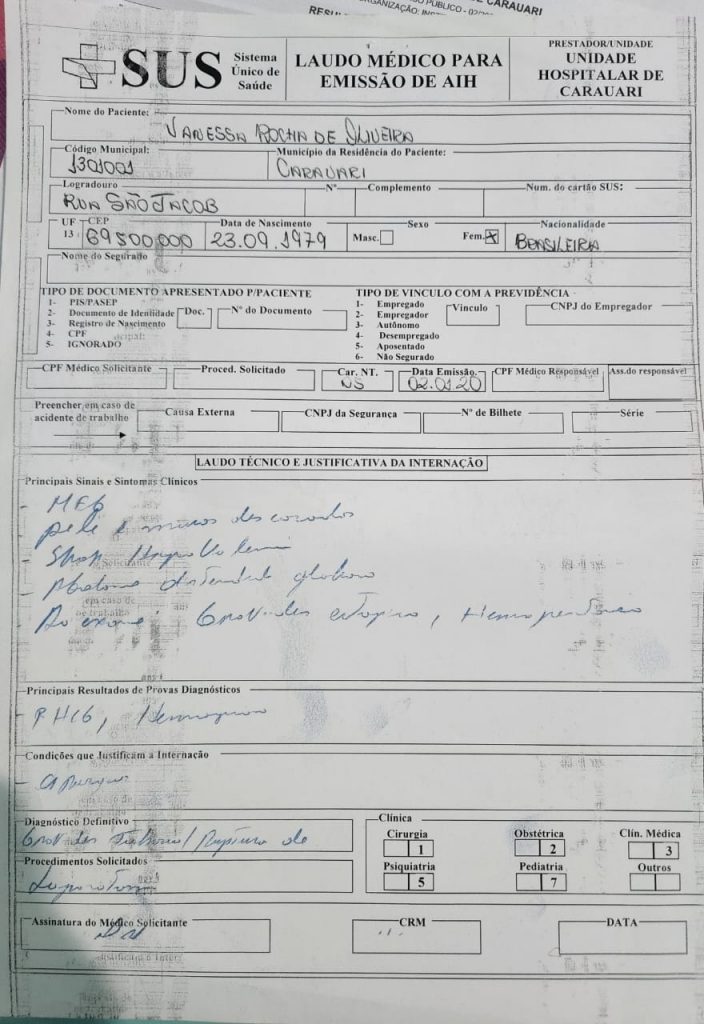 CARAUARI
SUS
Sistema
Único de
Saúde
LAUDO MÉDICO PARA
EMISSÃO DE AIH
PRESTADOR/UNIDADE
UNIDADE
HOSPITALAR DE
CARAUARI
Nome do Paciente:
VANESSA ROCHA DE OLIVEIRA
Código Municipal:
1301001
Município da Residência do Paciente:
CARAUARI
Logradouro
RUA SÃO JACOB
Nº
Complemento
Num. do cartão SUS:
UF
13
CEP
69500000
Data de Nascimento
23.09.1979
Sexo
Masc.
Fem. X
Nacionalidade
BRASILEIRA
Nome do Segurado
TIPO DE DOCUMENTO APRESENTADO P/PACIENTE
1- PIS/PASEP
2- Documento de Identidade
3- Registro de Nascimento
4- CPF
5- IGNORADO
Doc.
Nº do Documento
TIPO DE VINCULO COM A PREVIDÊNCIA
1- Empregado
2- Empregador
3- Autônomo
4- Desempregado
5- Aposentado
6- Não Segurado
Vinculo
CNPJ do Empregador
CPF Médico Solicitante
Proced. Solicitado
Car. NT.
NS
Data Emissão
CPF Médico Responsável
Ass.do responsável
Preencher em caso de
acidente de trabalho
Causa Externa
CNPJ da Segurança
Nº de Bilhete
Série
LAUDO TÉCNICO E JUSTIFICATIVA DA INTERNAÇÃO
Principais Sinais e Sintomas Clínicos
- MEG
pele e mucosas descoradas
- Shop Hipovolemi
- Abdome distendido globoso
- Ao exame: Gravidez ectópica,
Principais Resultados de Provas Diagnósticos
- BHCG, Hemograma
Condições que Justificam a Internação
Diagnóstico Definitivo
Gravidez Tubária/ Ruptura de
Procedimentos Solicitados
Laparotomia
Clínica
Cirurgia
1
Obstétrica
2
Clín. Médica
3
Psiquiatria
5
Pediatria
7
Outros
Assinatura do Médico Solicitante
CRM
DATA